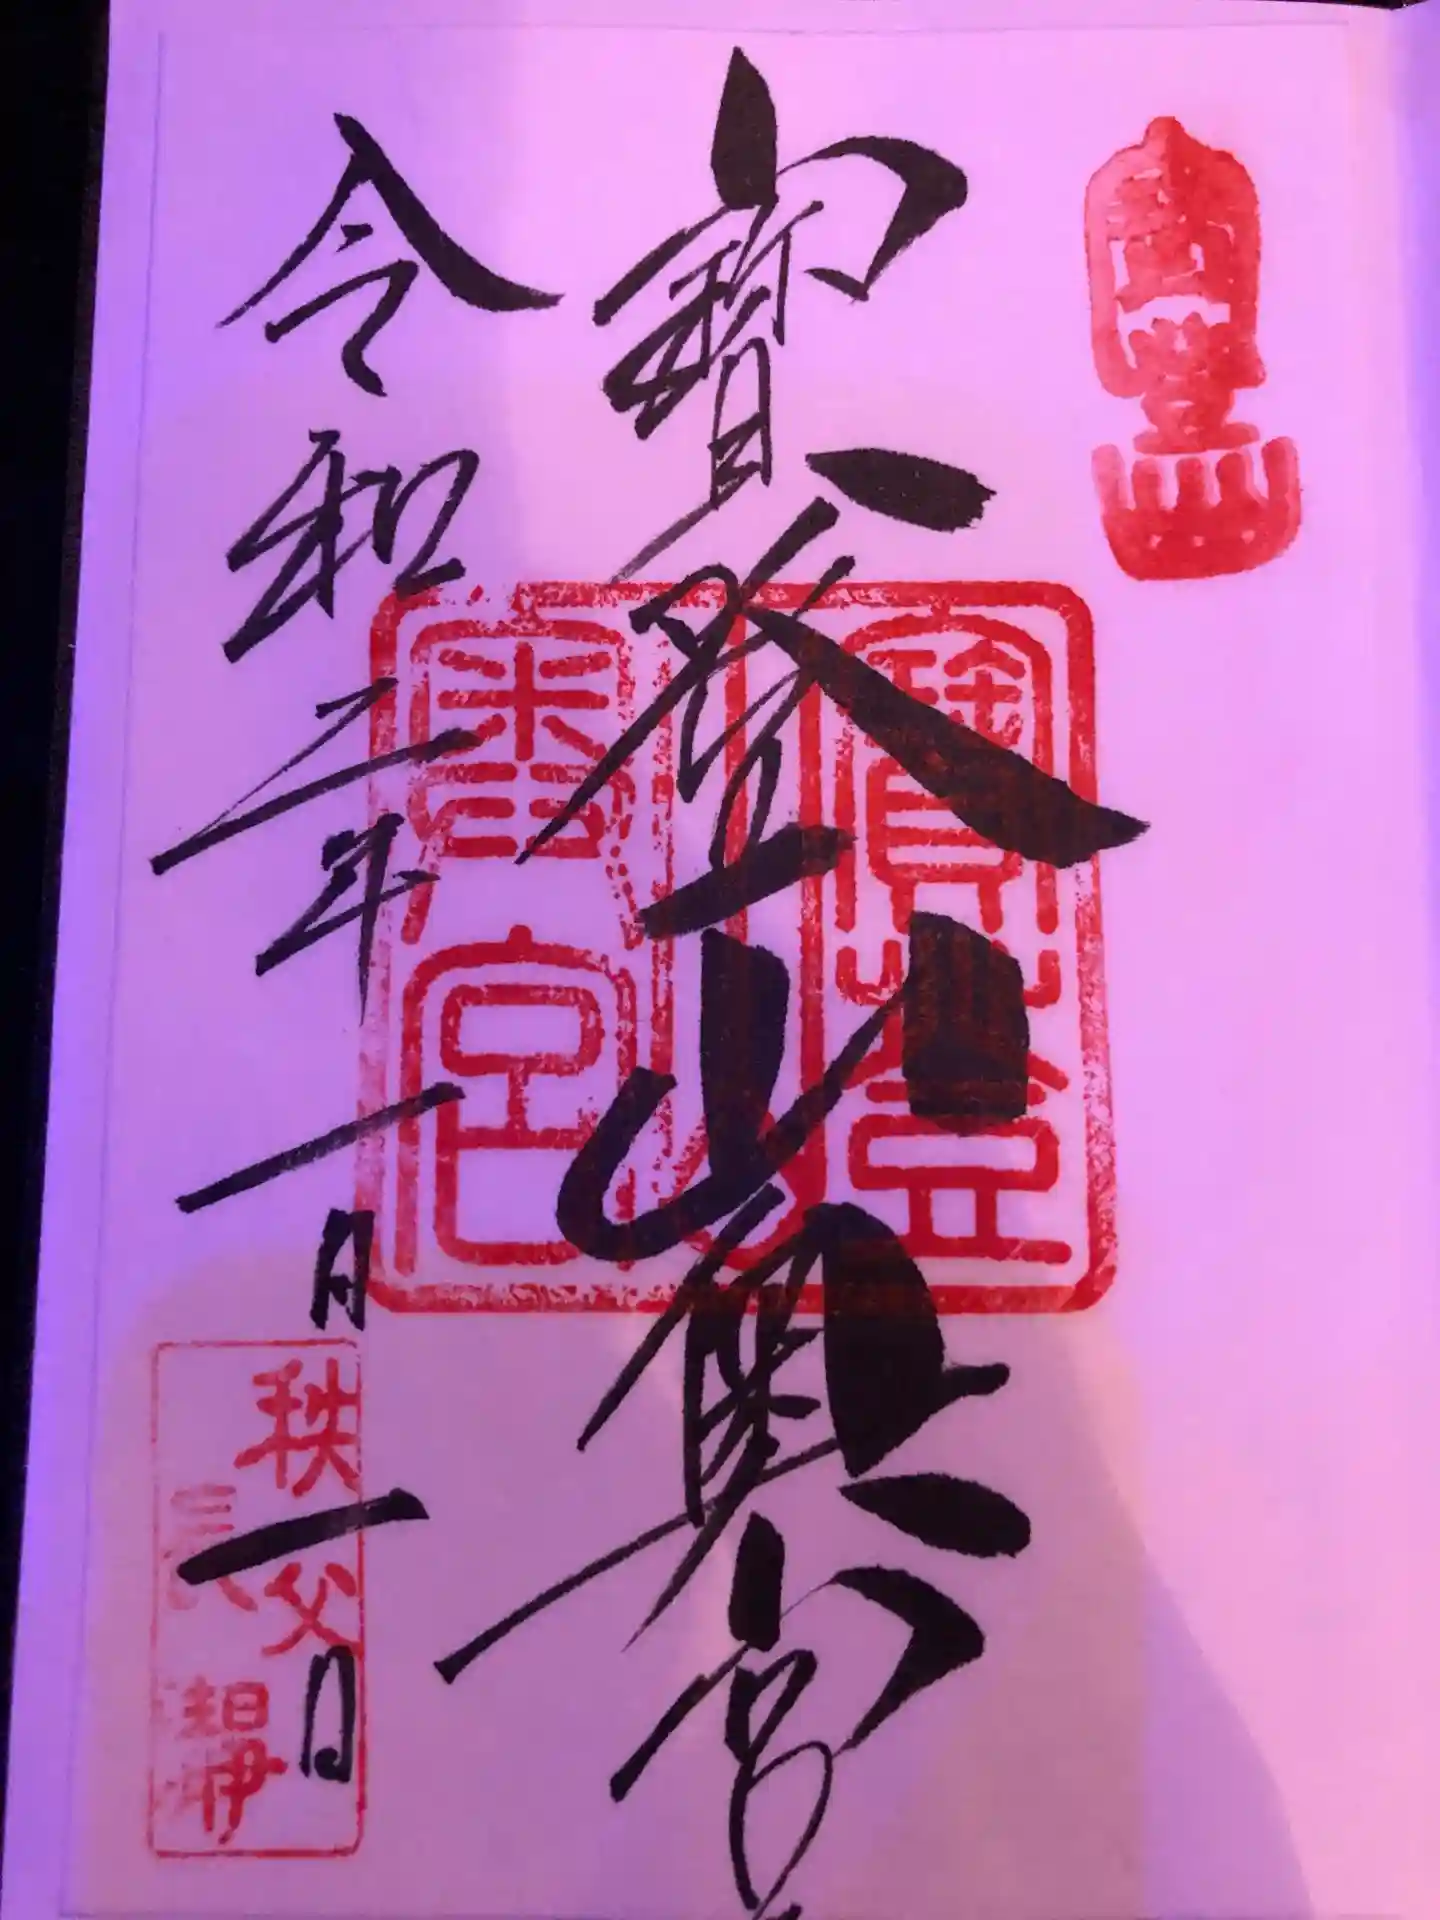 寳登山奥宮
令和二年一月一日
寳登
山
奥宮
秩父
長瀞